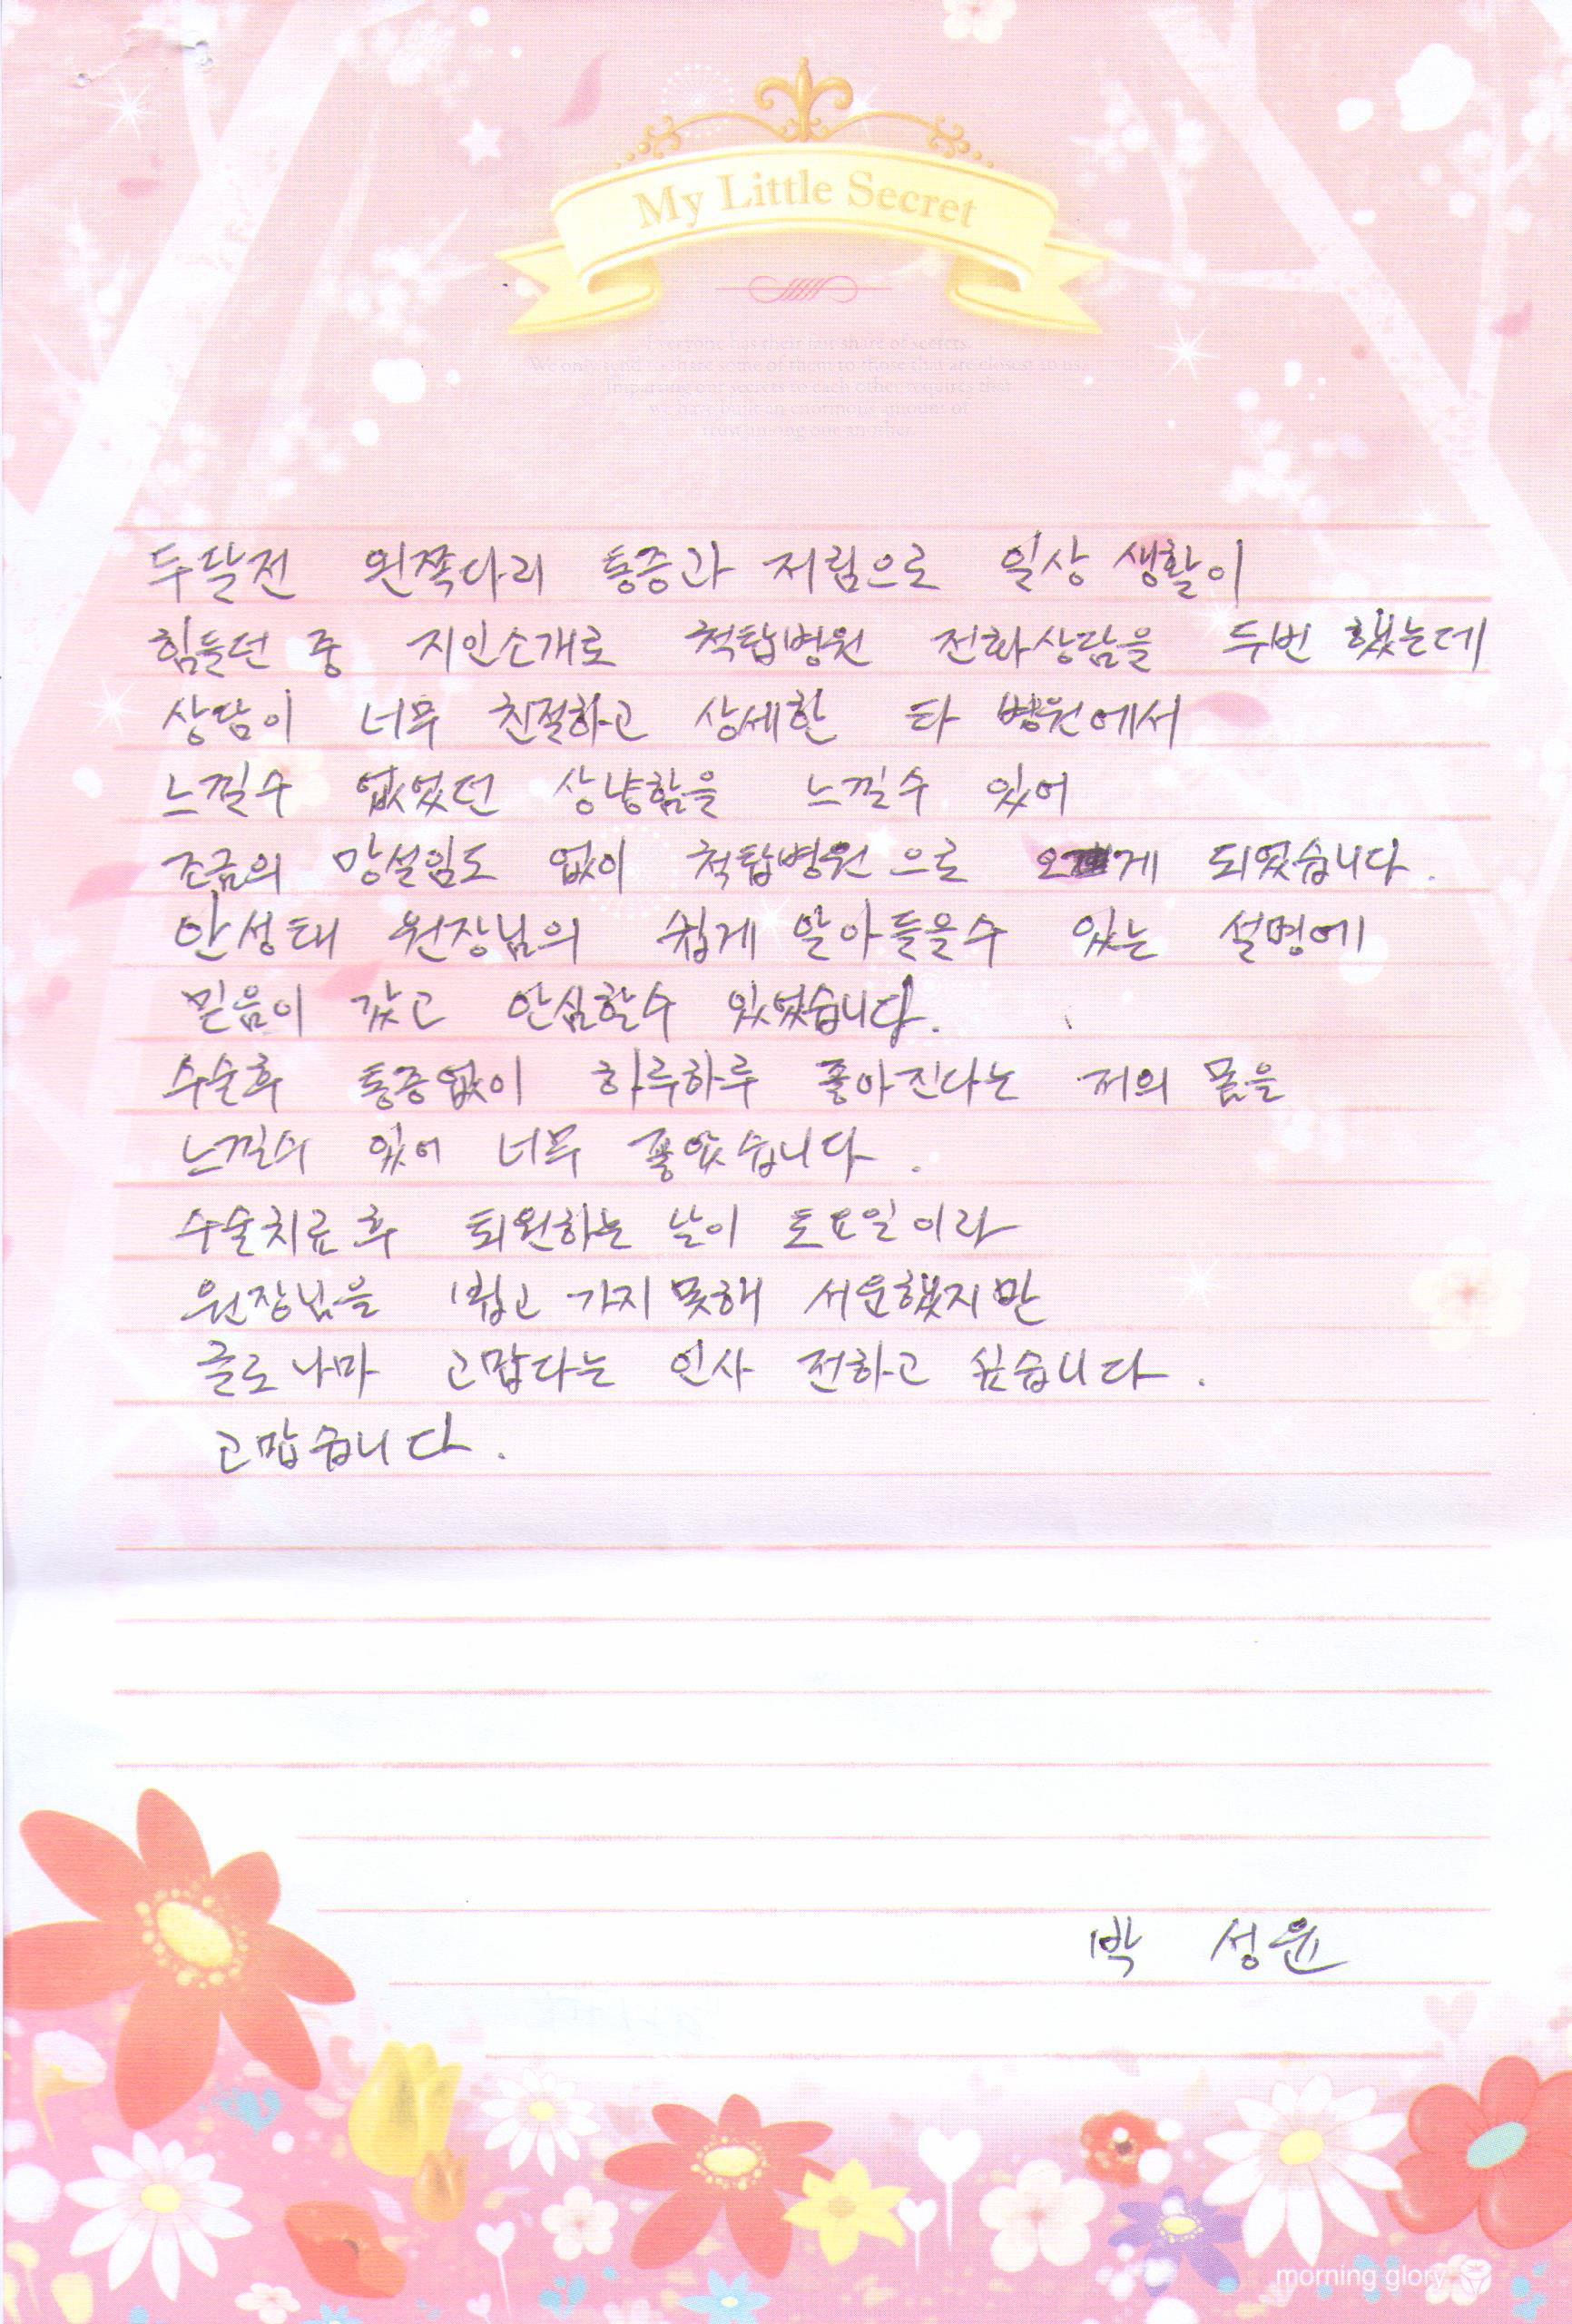 My Little Secret
Everyone has their fair share of secrets.
We only tend to share some of them to those that are closest to us.
Imparting our secrets to each other requires that
we have built an enormous amount of
trust among one another.
두달전 왼쪽다리 통증과 저림으로 일상 생활이
힘들던 중 지인소개로 척탑병원 전화상담을 두번 했는데
상담이 너무 친절하고 상세한 타 병원에서
느낄수 없었던 상냥함을 느낄수 있어
조금의 망설임도 없이 척탑병원으로 오게 되었습니다.
안성태 원장님의 쉽게 알아들을수 있는 설명에
믿음이 갔고 안심할수 있었습니다.
수술후 통증없이 하루하루 좋아진다는 저의 몸을
느낄수 있어 너무 좋았습니다.
수술치료후 퇴원하는 날이 토요일이라
원장님을 뵙고 가지 못해 서운했지만
글로나마 고맙다는 인사 전하고 싶습니다.
고맙습니다.
박 성윤
morning glory